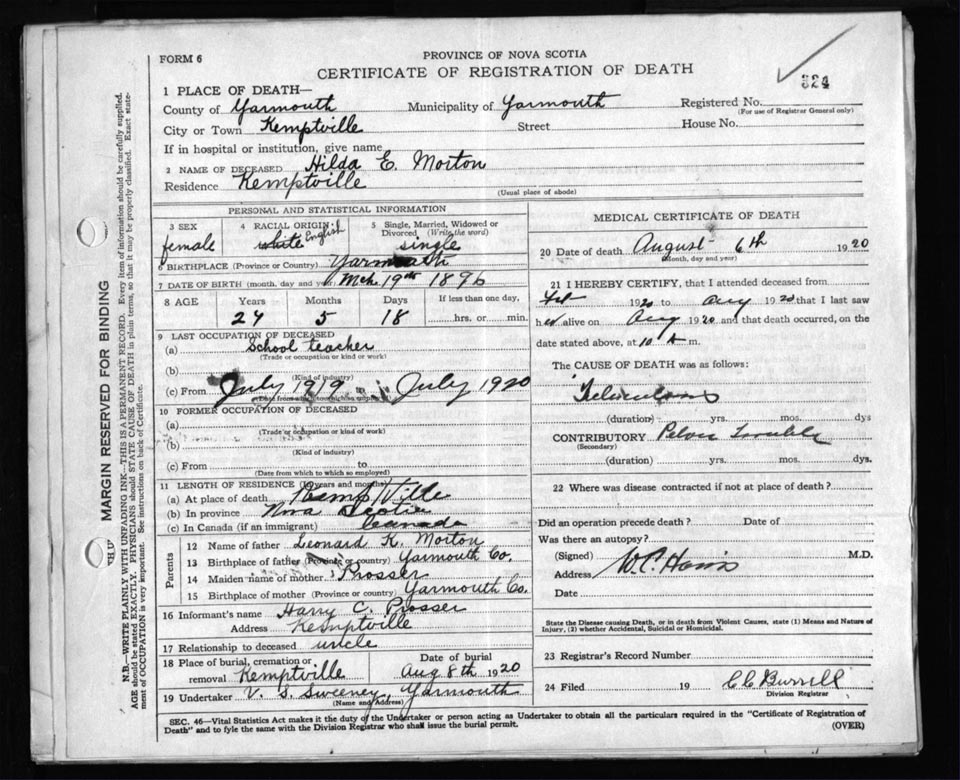 FORM 6
PROVINCE OF NOVA SCOTIA
CERTIFICATE OF REGISTRATION OF DEATH
324
1 PLACE OF DEATH—
County of Yarmouth Municipality of Yarmouth Registered No.
(For use of Registrar General only)
City or Town Kemptville Street House No.
If in hospital or institution, give name
2 NAME OF DECEASED Hilda E. Morton
Residence Kemptville
(Usual place of abode)
PERSONAL AND STATISTICAL INFORMATION
3 SEX 4 RACIAL ORIGIN 5 Single, Married, Widowed or Divorced (Write the word)
female white English single
6 BIRTHPLACE (Province or Country) Yarmouth
7 DATE OF BIRTH (month, day and year) Mch. 19th 1896
8 AGE Years Months Days If less than one day,
24 5 18 hrs. or min.
9 LAST OCCUPATION OF DECEASED
(a) School teacher
(Trade or occupation or kind or work)
(b)
(Kind of industry)
(c) From July 1919 July 1920
10 FORMER OCCUPATION OF DECEASED
(a)
(Trade or occupation or kind of work)
(b)
(Kind of industry)
(c) From to
(Date from which to which so employed)
11 LENGTH OF RESIDENCE (In years and months)
(a) At place of death Kemptville
(b) In province Nova Scotia
(c) In Canada (if an immigrant) Canada
Parents
12 Name of father Leonard K. Morton
13 Birthplace of father (Province or country) Yarmouth Co.
14 Maiden name of mother Prosser
15 Birthplace of mother (Province or country) Yarmouth Co.
16 Informant's name Harry C. Prosser
Address Kemptville
17 Relationship to deceased uncle
18 Place of burial, cremation or removal Kemptville Date of burial Aug 8th 1920
19 Undertaker V. S. Sweeney, Yarmouth
(Name and Address)
MEDICAL CERTIFICATE OF DEATH
20 Date of death August 6th 1920
(Month, day and year)
21 I HEREBY CERTIFY, that I attended deceased from
Feb 1920 to Aug 1920 that I last saw
her alive on Aug 1920 and that death occurred, on the
date stated above, at 10 A m.
The CAUSE OF DEATH was as follows:
(duration) yrs. mos. days
CONTRIBUTORY Pelvic Trouble
(Secondary)
(duration) yrs. mos. dys.
22 Where was disease contracted if not at place of death?
Did an operation precede death? Date of
Was there an autopsy?
(Signed) W.C. M.D.
Address
Date
State the Disease causing Death, or in death from Violent Causes, state (1) Means and Nature of
Injury, (2) whether Accidental, Suicidal or Homicidal.
23 Registrar's Record Number
24 Filed 19 C C Burrell
Division Registrar
SEC. 46—Vital Statistics Act makes it the duty of the Undertaker or person acting as Undertaker to obtain all the particulars required in the "Certificate of Registration of
Death" and to fyle the same with the Division Registrar who shall issue the burial permit.
(OVER)
MARGIN RESERVED FOR BINDING
N.B.—WRITE PLAINLY WITH UNFADING INK—THIS IS A PERMANENT RECORD. Every item of information should be carefully supplied.
AGE should be stated EXACTLY. PHYSICIANS should STATE CAUSE OF DEATH in plain terms, so that it may be properly classified. Exact state-
ment of OCCUPATION is very important. See instructions on back of Certificate.